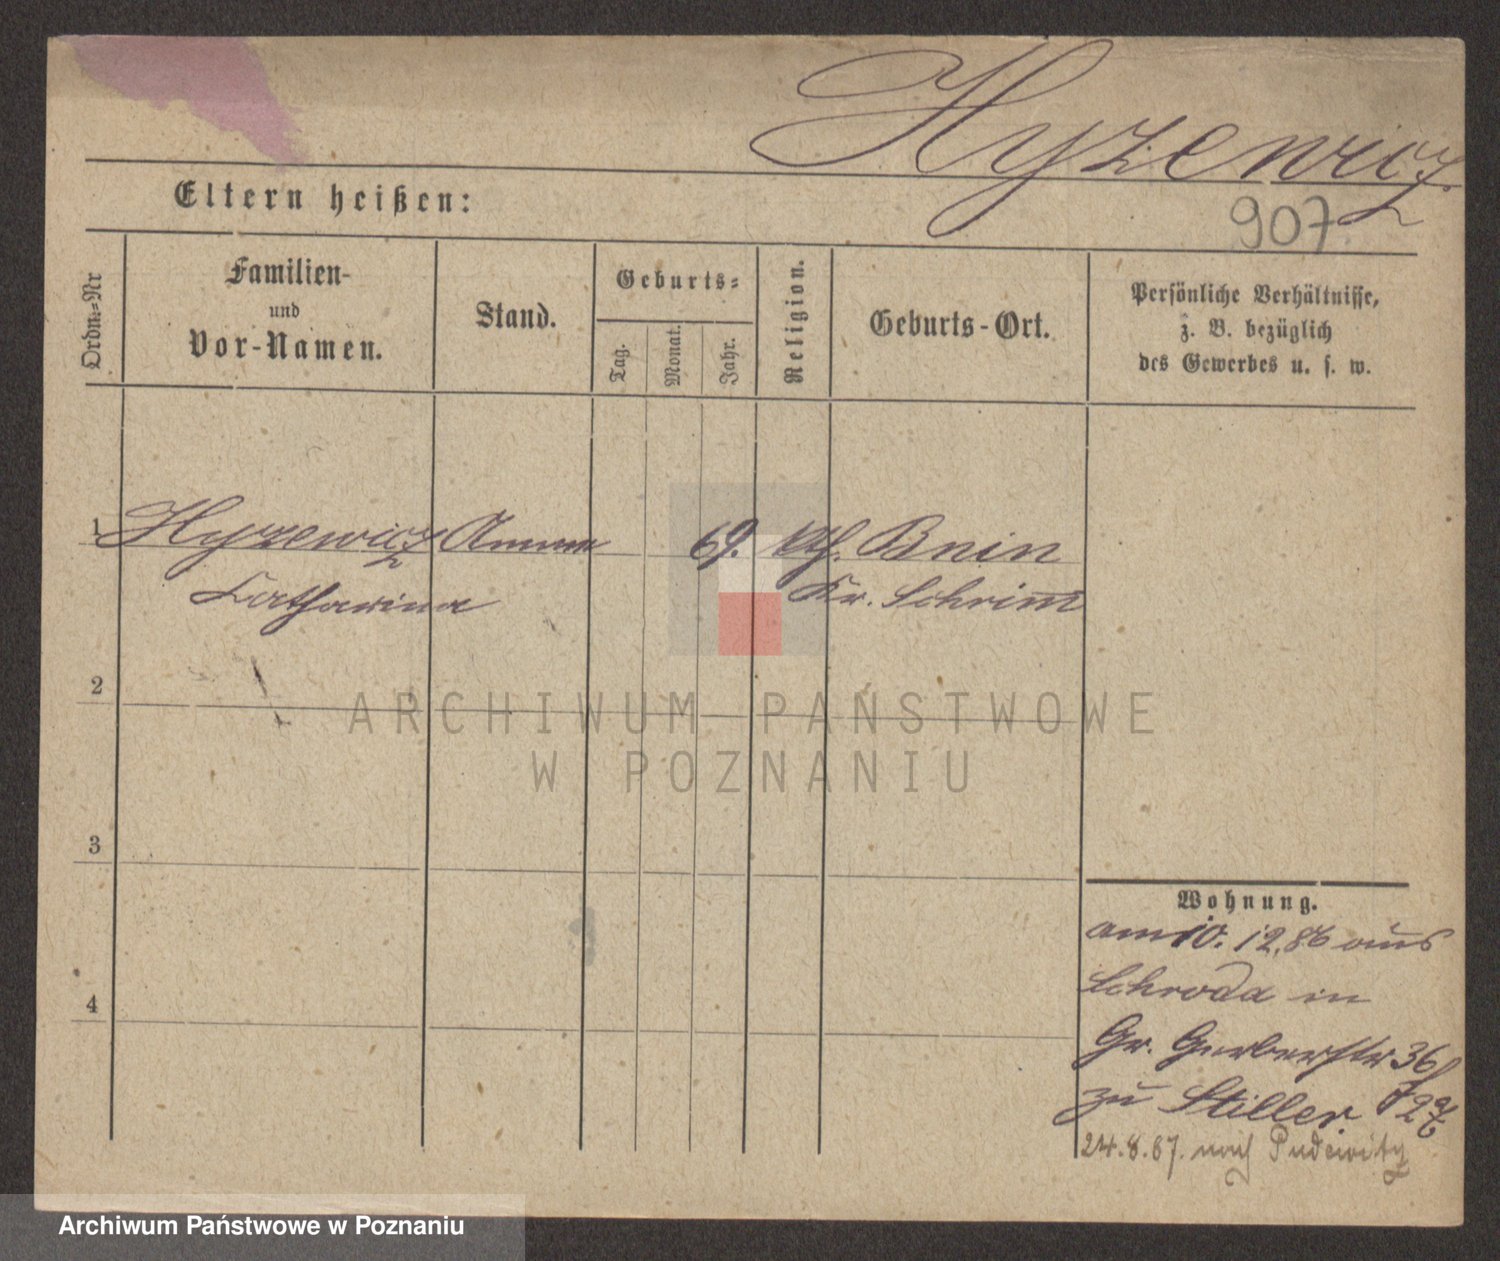 Hyzewicz.
907.
Eltern heißen:
Ordn.-Nr
Familien-
und
Vor-Namen.
Stand.
Geburts-
Tag.
Monat.
Jahr.
Religion.
Geburts-Ort.
Persönliche Verhältnisse,
z. B. bezüglich
des Gewerbes u. s. w.
1 Hyzewicz Amme 69. kth. Bnin
Catharina Kr. Schrimm
2
3
4
Wohnung.
am 10. 12. 86 aus
Schroda in
Gr. Gerberstr 36
zu Stiller
24.8.87. nach Pudewitz
ARCHIWUM PAŃSTWOWE
W POZNANIU
Archiwum Państwowe w Poznaniu